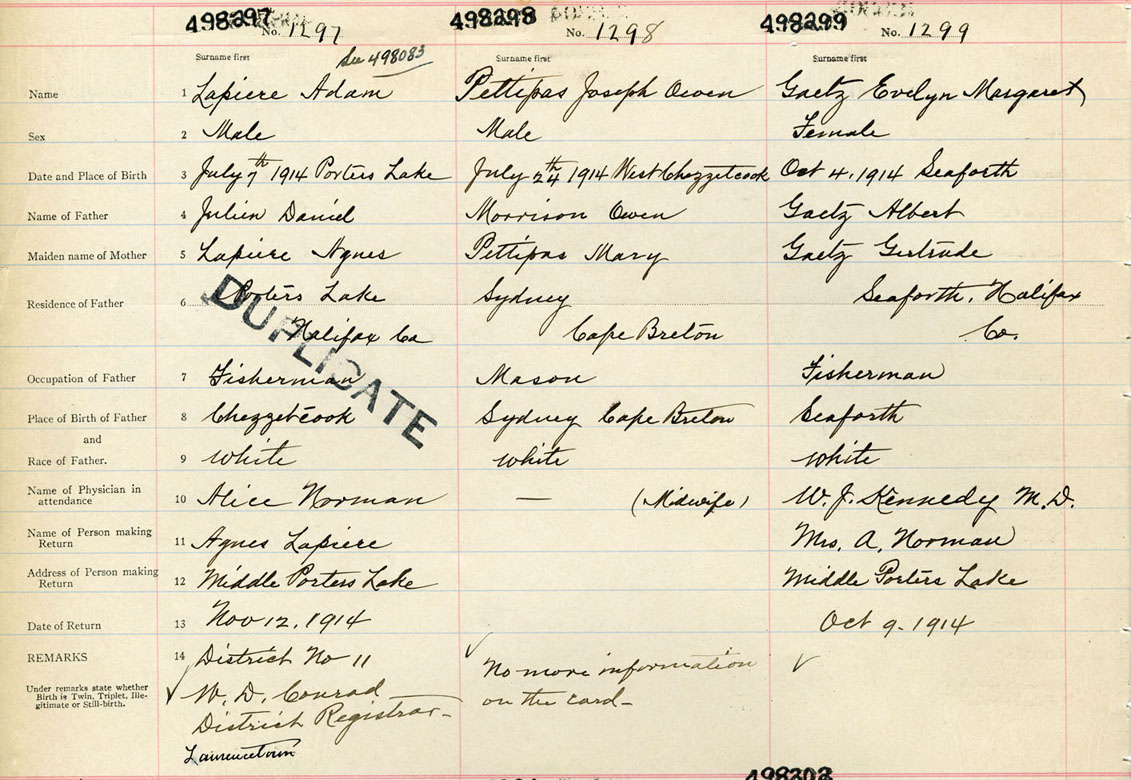 498297 498298 498299
No. 1297 No. 1298 No. 1299
See 498083
Surname first Surname first Surname first
Name 1 Lapiere Adam Pettipas Joseph Owen Gaetz Evelyn Margaret
Sex 2 Male Male Female
Date and Place of Birth 3 July 7th 1914 Porters Lake July 24th 1914 West Chezzetcook Oct 4, 1914 Seaforth
Name of Father 4 Julien Daniel Morrison Owen Gaetz Albert
Maiden name of Mother 5 Lapiere Agnes Pettipas Mary Gaetz Gertrude
Residence of Father 6 Porters Lake Sydney Seaforth, Halifax
Halifax Co Cape Breton Co.
DUPLICATE
Occupation of Father 7 Fisherman Mason Fisherman
Place of Birth of Father 8 Chezzetcook Sydney Cape Breton Seaforth
and
Race of Father. 9 White White White
Name of Physician in
attendance 10 Alice Norman — (Midwife) W. J. Kennedy M.D.
Name of Person making
Return 11 Agnes Lapiere Mrs. A. Norman
Address of Person making
Return 12 Middle Porters Lake Middle Porters Lake
Date of Return 13 Nov 12, 1914 Oct 9 - 1914
REMARKS 14 District No 11 No more information
Under remarks state whether
Birth is Twin, Triplet, Ille-
gitimate or Still-birth.
W. D. Conrad on the card-
District Registrar-
Lawrencetown
498303